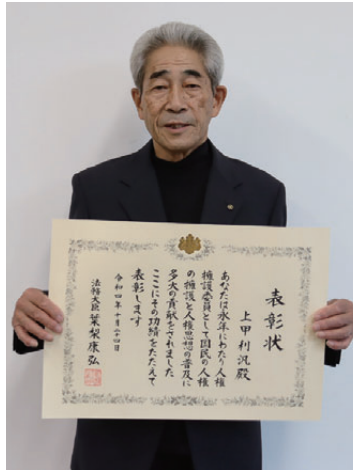 表彰状
上甲利況殿
あなたは永年にわたり人権
擁護委員として国民の人権
の擁護と人権思想の普及に
多大の貢献をされました
ここにその功績をたたえて
表彰します
令和四年十月二十四日
法務大臣 葉梨康弘